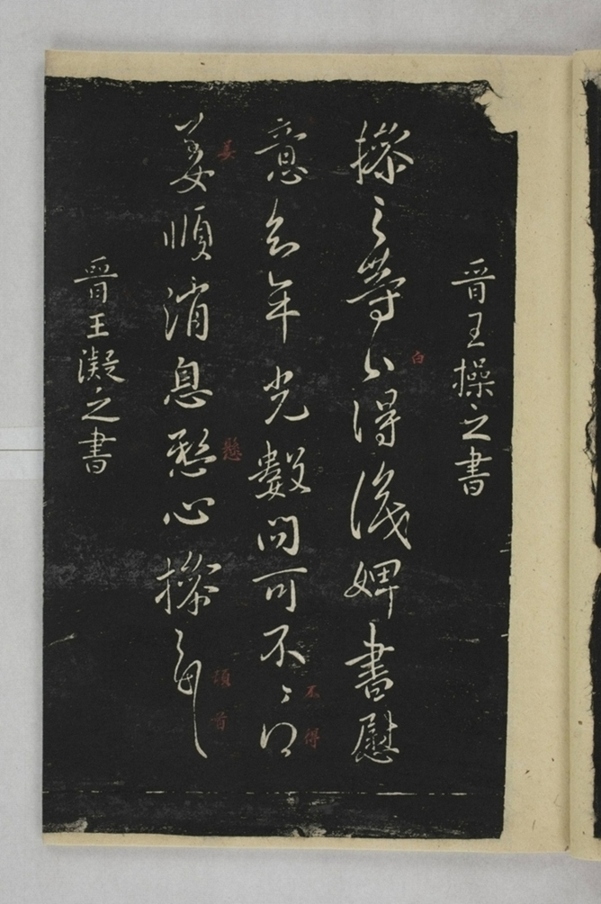 晉王操之書
操之等白得識婢書慰
白
意知年光數問可不不得
不
得
姜順消息懸心操之頓首
姜
懸
頓
首
晉王凝之書